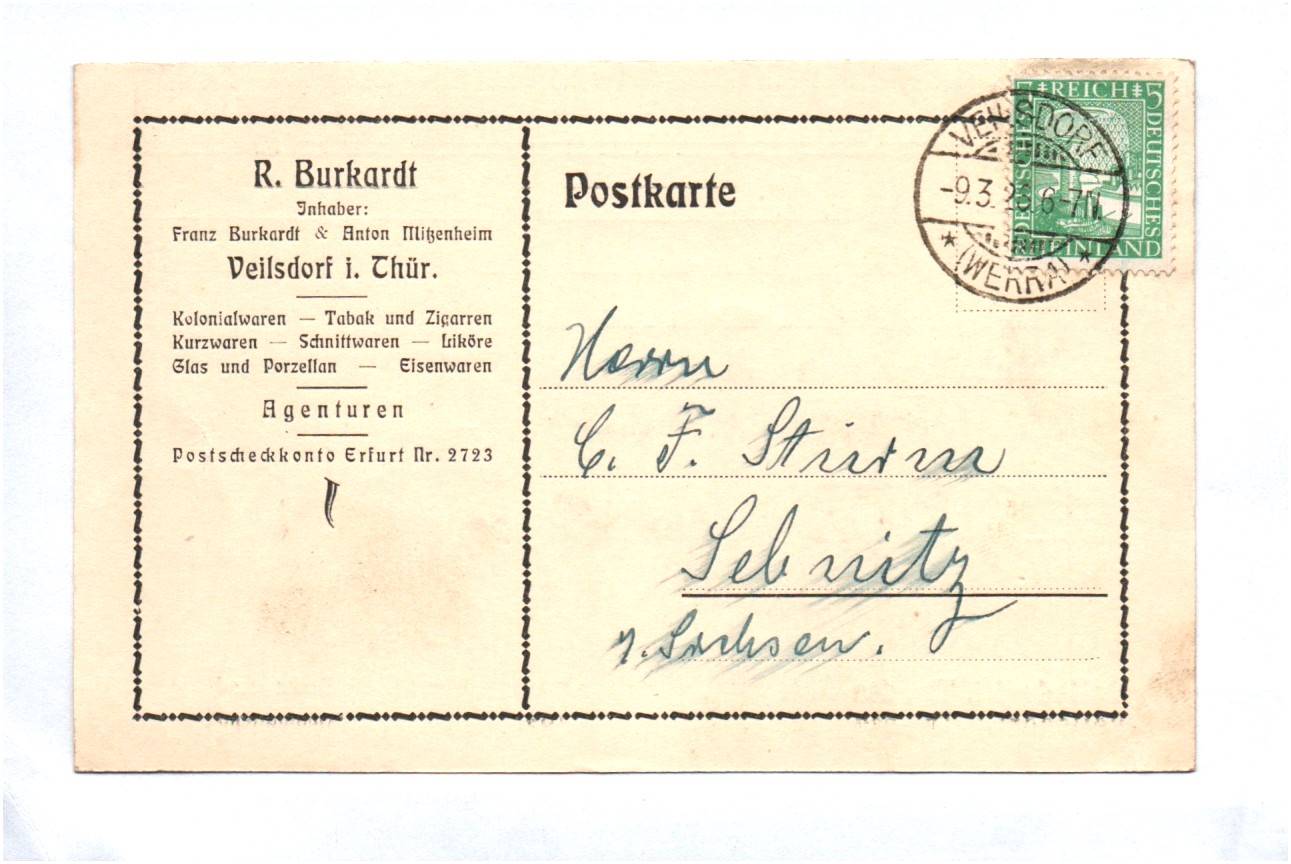 R. Burkardt
Inhaber:
Franz Burkardt & Anton Mitzenheim
Veilsdorf i. Thür.
Kolonialwaren — Tabak und Zigarren
Kurzwaren — Schnittwaren — Liköre
Glas und Porzellan — Eisenwaren
Agenturen
Postscheckkonto Erfurt Nr. 2723
Postkarte
REICH 5
DEUTSCHES
RHEINLAND
VEILSDORF
-9.3. 6-7N.
(WERRA)
Herrn
C. F. Sturm
Sebnitz
i. Sachsen.